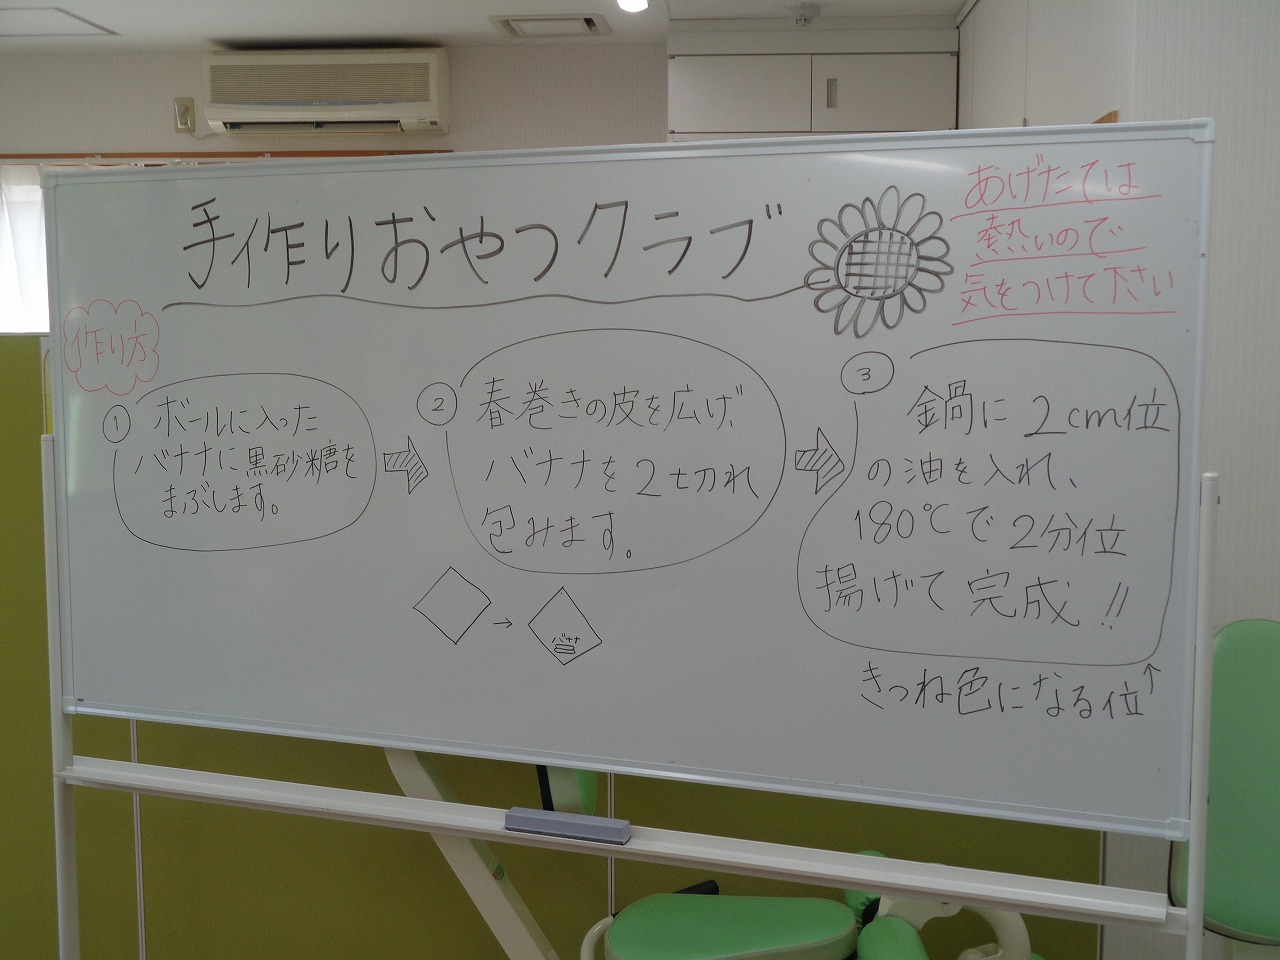 手作りおやつクラブ
あげたては
熱いので
気をつけて下さい
作り方
①
ボールに入った
バナナに黒砂糖を
まぶします。
②
春巻きの皮を広げ、
バナナを2切れ
包みます。
バナナ
③
鍋に2cm位
の油を入れ、
180℃で2分位
揚げて完成!!
きつね色になる位↑